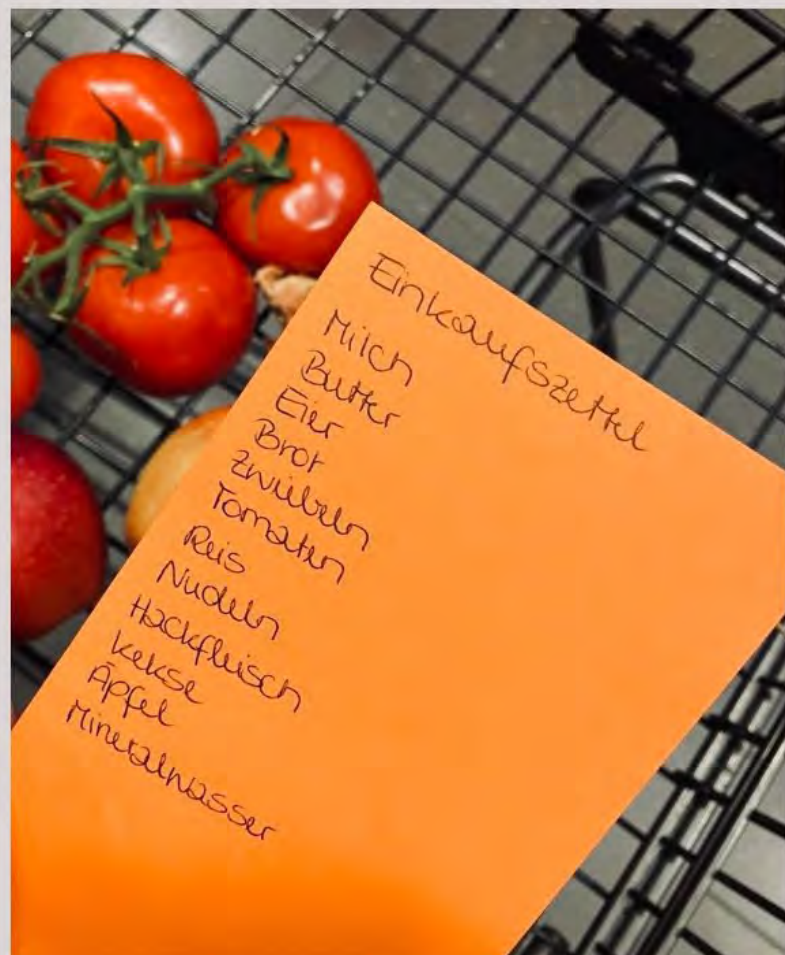 Einkaufszettel
Milch
Butter
Eier
Brot
Zwiebeln
Tomaten
Reis
Nudeln
Hackfleisch
Kekse
Äpfel
Mineralwasser